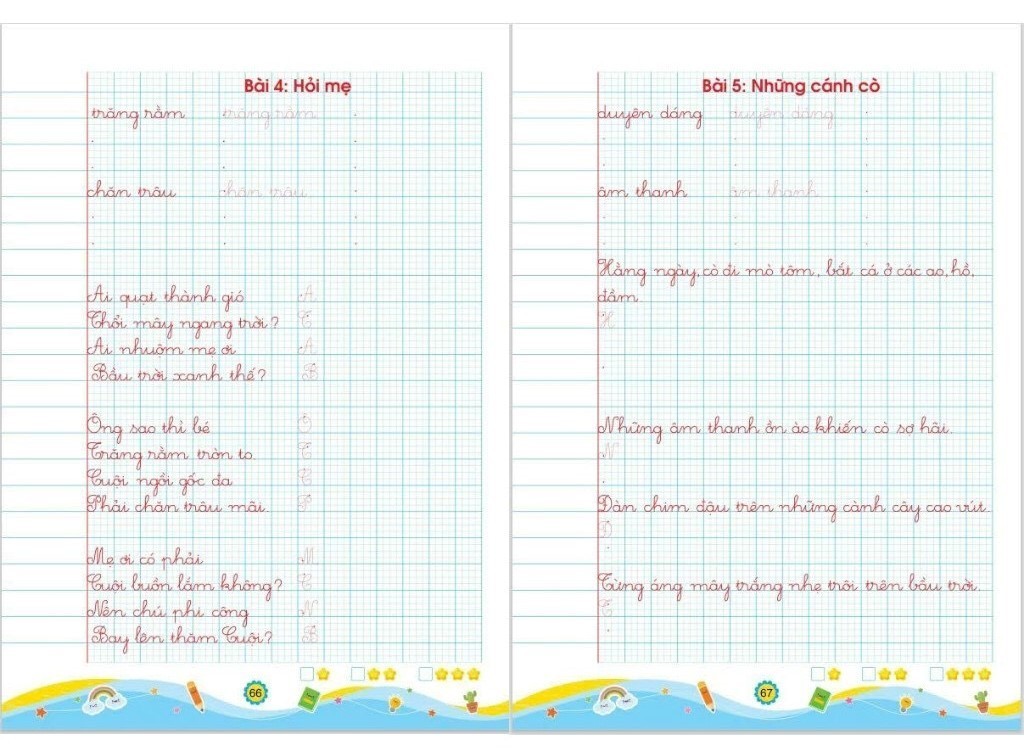 Bài 4: Hỏi mẹ
trăng rằm trăng rằm
chăn trâu chăn trâu
Ai quạt thành gió A
Thổi mây ngang trời? T
Ai nhuộm mẹ ơi A
Bầu trời xanh thế? B
Ông sao thì bé Ô
Trăng rằm tròn to. T
Cuội ngồi gốc đa C
Phải chăn trâu mãi. P
Mẹ ơi có phải M
Cuội buồn lắm không? C
Nên chú phi công N
Bay lên thăm Cuội? B
66
Bài 5: Những cánh cò
duyên dáng duyên dáng
âm thanh âm thanh
Hằng ngày, cò đi mò tôm, bắt cá ở các ao, hồ,
đầm.
H
Những âm thanh ồn ào khiến cò sợ hãi.
N
Đàn chim đậu trên những cành cây cao vút.
Đ
Từng áng mây trắng nhẹ trôi trên bầu trời.
T
67